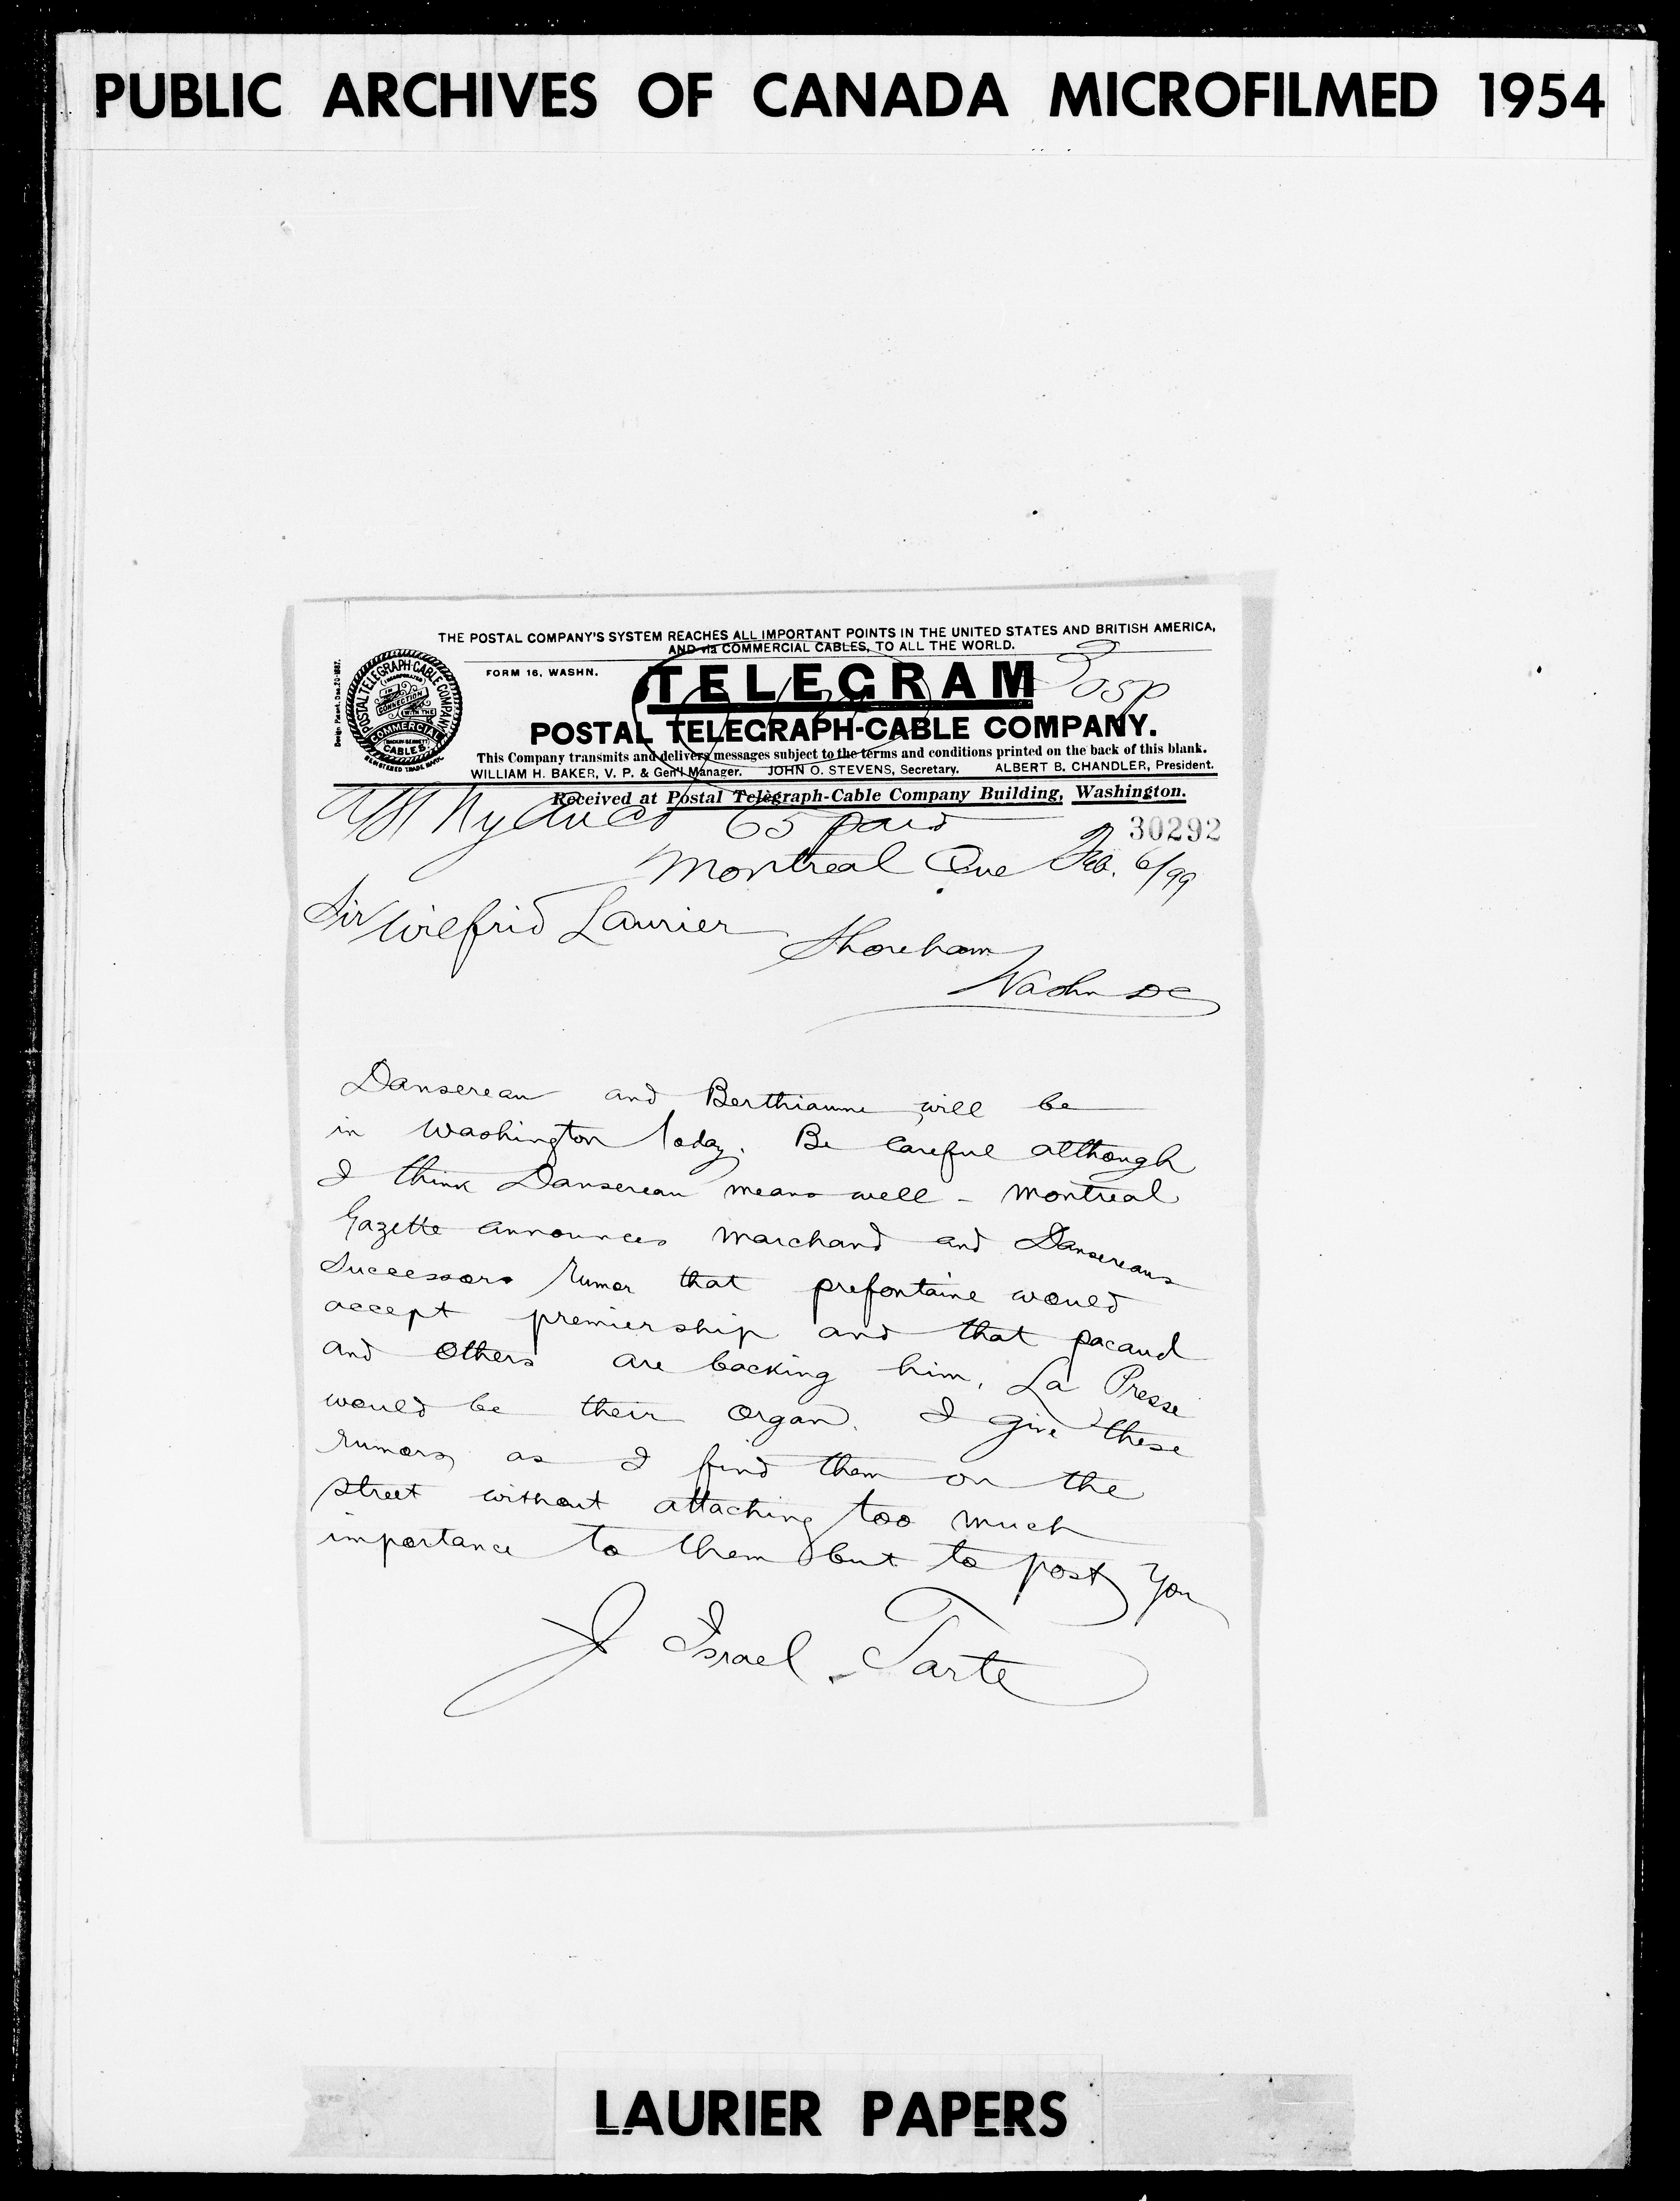 PUBLIC ARCHIVES OF CANADA MICROFILMED 1954
THE POSTAL COMPANY'S SYSTEM REACHES ALL IMPORTANT POINTS IN THE UNITED STATES AND BRITISH AMERICA,
AND via COMMERCIAL CABLES, TO ALL THE WORLD.
FORM 16, WASHN.
POSTAL TELEGRAPH-CABLE COMPANY
INCORPORATED
IN CONNECTION WITH THE
COMMERCIAL
CABLES
REGISTERED TRADE MARK.
TELEGRAM
POSTAL TELEGRAPH-CABLE COMPANY.
This Company transmits and delivers messages subject to the terms and conditions printed on the back of this blank.
WILLIAM H. BAKER, V. P. & Gen'l Manager. JOHN O. STEVENS, Secretary. ALBERT B. CHANDLER, President.
Received at Postal Telegraph-Cable Company Building, Washington.
65 paid
30292
Montreal Que Feb. 6/99
Sir Wilfrid Laurier
Shoreham
Washn DC
Dansereau and Berthiaume will be
in Washington today. Be careful although
I think Dansereau means well - Montreal
Gazette announces Marchand and Dansereaus
Successors rumor that prefontaine would
accept premiership and that pacaud
and others are backing him, La Presse
would be their organ. I give these
rumors as I find them on the
street without attaching too much
importance to them but to post you
J Israel Tarte
LAURIER PAPERS